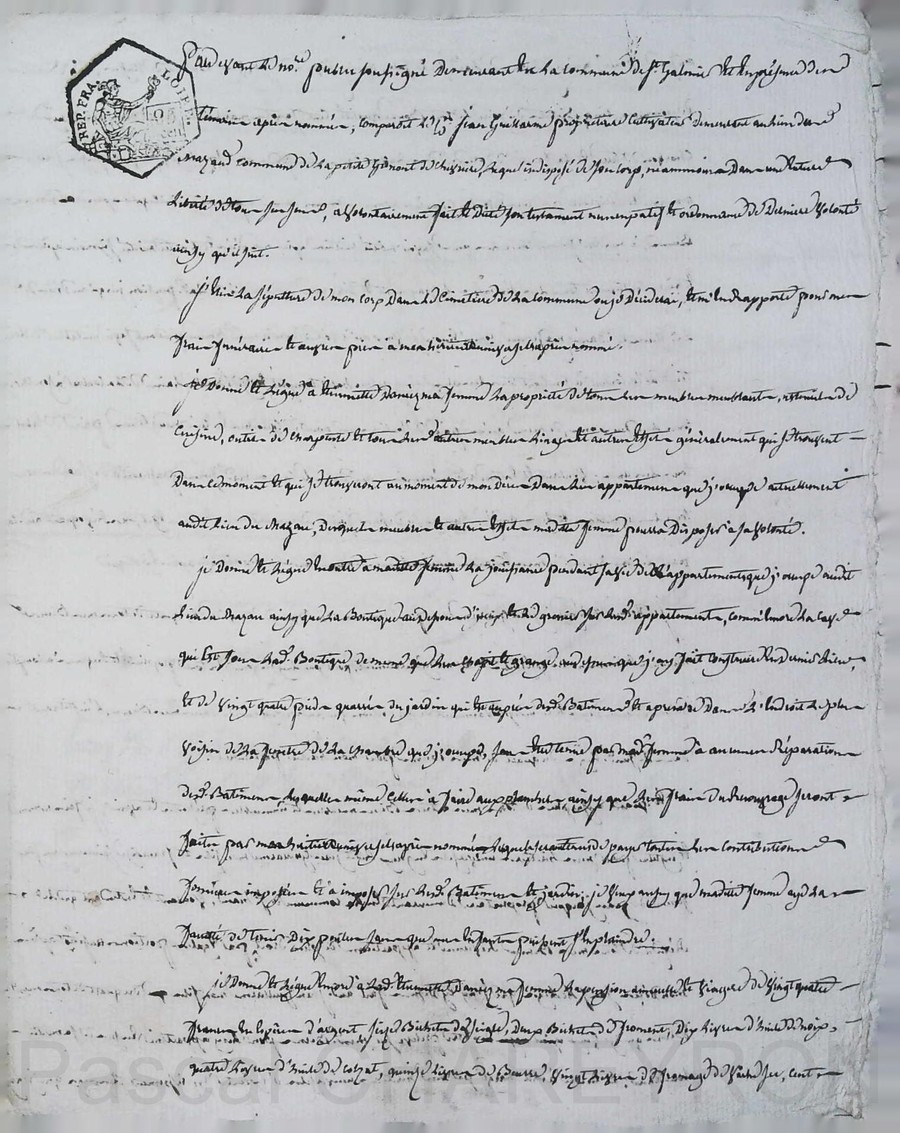 REP. FRA. LOIRE
Par devant le no.re public soussigné Demeurant en la commune de St. Galmier et en présence de
témoins après nommés, comparoit le Cn. Jean Guillarme propriétaire cultivateur demeurant au lieu du
mazau commune de La, lequel indisposé de son corp, néanmoins Dans une
Liberté de tous ses sens, a volontairement fait et Dicté son testament nuncupatif et ordonnance de Dernière volonté
ainsy qu'il suit.
j'Elis La sépulture de mon corp Dans Le Cimetière de La commune ou je Décéderai, et m'En Rapporte pour mes
frais funéraires et œuvres pies à mon héritier universel après nommé.
je Donne et Lègue à Ennette Daniez ma femme La propriété de tous les meubles meublants, ustensiles de
Cuisine, outils de charpente et tous les autres meubles Linges et autres Effets généralement qui se trouvent
Dans ce moment et qui se trouveront au moment de mon Décès Dans Les appartements que j'occupe actuellement
audit Lieu du Mazau, Desquels meubles et autres Effets madite femme pourra Disposer à sa volonté.
je Donne et Lègue Encore à madite femme La jouissance pendant sa vie de appartements que j'occupe audit
Lieu du Mazau ainsy que La Boutique au dessous d'iceux et Le grenier sur Lesd. appartements, comm'encore La cave
qui Est sous Lad. Boutique de meme que Les et grange au que j'ay fait construire En dernier Lieu
et de vingt quatre pieds quarrés du jardin qui Est auprès desd. Batiments et à prendre Dans L'Endroit Le plus
voisin de La fenetre de La chambre que j'occupe, sans Etre tenue par mad. femme à aucunes Réparations
desd. Batiments, Lesquelles même celles à faire aux planchers ainsy que Les frais du seront
faites par mon heritier universel après nommé Lequel sera tenu de payer toutes Les contributions
foncières imposées et à imposer sur Lesd. Batiments et jardin; je veux aussy que madite femme aye La
faculté de tenir Dix poules sans que mes Enfants puissent s'En plaindre.
je Donne et Lègue Encore à Lad. Ennette Daniez ma femme La pension annuelle et viagère de vingt quatre
francs En Espèces d'argent, seize Bichets de seigle, deux Bichets de froment, Dix Livres d'huile de noix,
quatre Livres d'huile de colzat, quinze Livres de Beurre, vingt Livres de fromage de vache sec, cent
Pascal CHARLEYRON